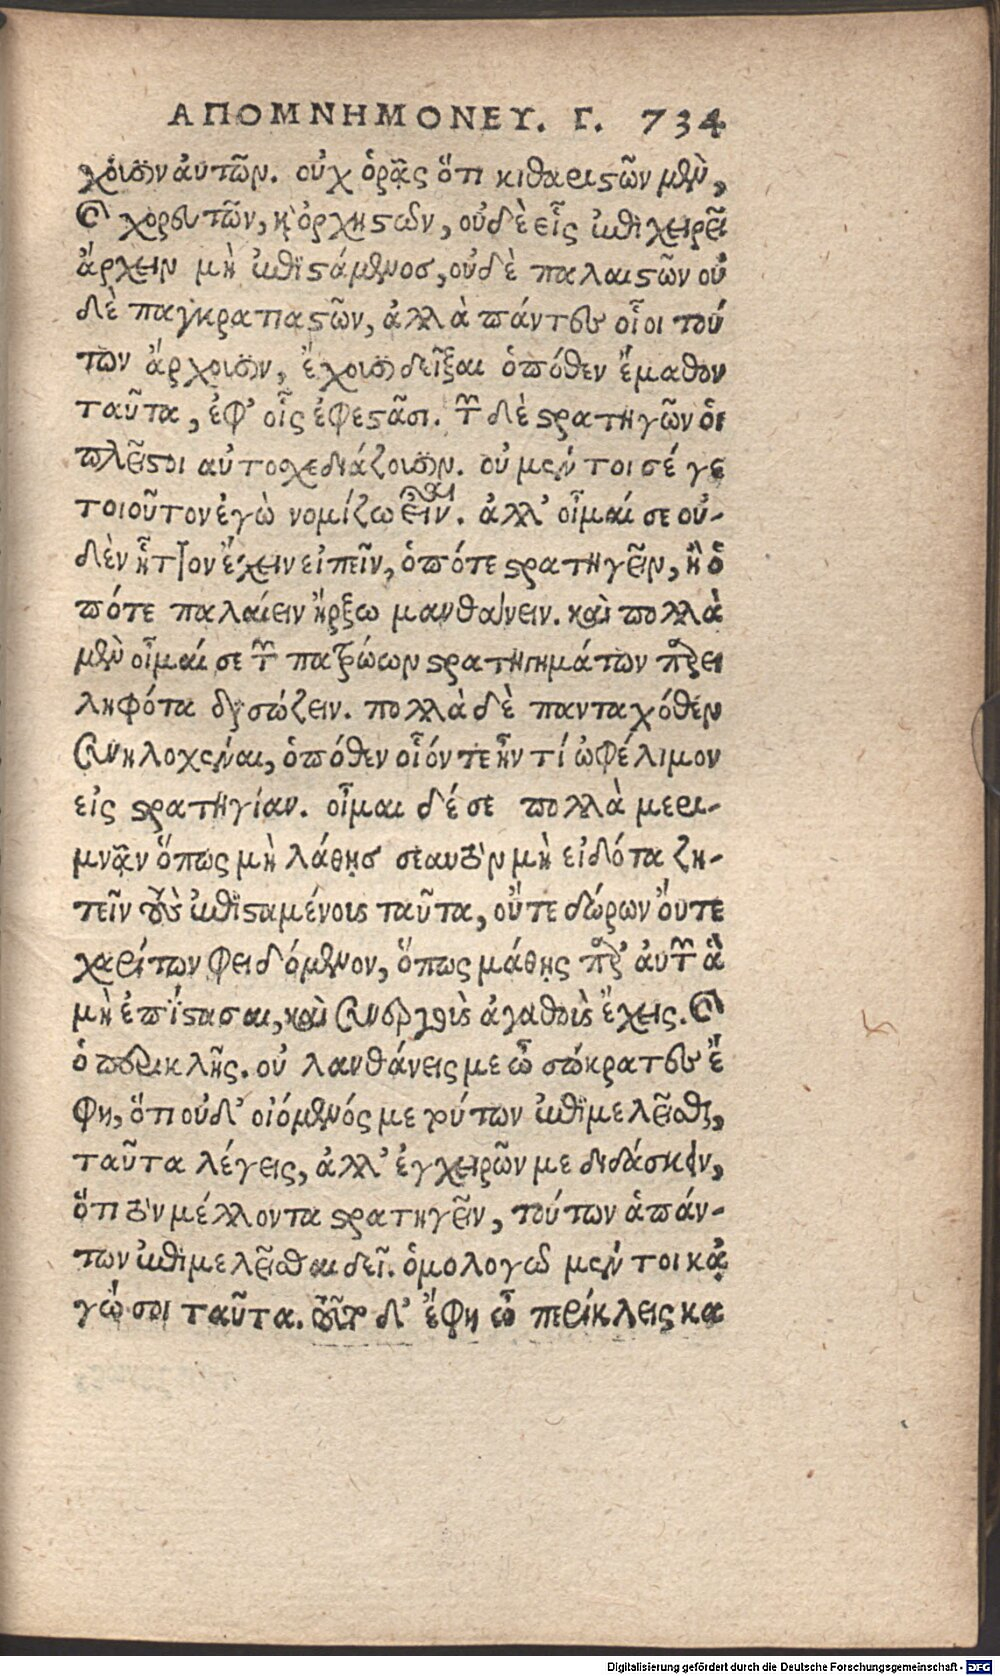 ΑΠΟΜΝΗΜΟΝΕΥ. Γ. 734
χουσιν αὐτῶν. οὐχ ὁρᾷς ὅτι κιθαριστῶν μὲν,
καὶ χορευτῶν, καὶ ὀρχηστῶν, οὐδὲ εἷς ἐπιχειρεῖ
ἄρχειν μὴ ἐπιστάμενος, οὐδὲ παλαιστῶν οὐ
δὲ παγκρατιαστῶν, ἀλλὰ πάντες οἷοι τού
των ἄρχουσιν, ἔχουσι δεῖξαι ὁπόθεν ἔμαθον
ταῦτα, ἐφ’ οἷς ἐφεστᾶσι. τῶν δὲ στρατηγῶν οἱ
πλεῖστοι αὐτοσχεδιάζουσιν. οὐ μέντοι σέ γε
τοιοῦτον ἐγὼ νομίζω εἶναι. ἀλλ’ οἶμαί σε οὐ-
δὲν ἧττον ἔχειν εἰπεῖν, ὁπότε στρατηγεῖν, ἢ ὁ
πότε παλαίειν ἤρξω μανθάνειν. καὶ πολλὰ
μὲν οἶμαί σε τῶν πατρώων στρατηγημάτων παρει
ληφότα διασώζειν. πολλὰ δὲ πανταχόθεν
συνηλοχέναι, ὁπόθεν οἷόν τε ἦν τί ὠφέλιμον
εἰς στρατηγίαν. οἶμαι δέ σε πολλὰ μερι-
μνᾷν ὅπως μὴ λάθῃς σεαυτὸν μὴ εἰδότα ζη-
τεῖν τοὺς ἐπισταμένους ταῦτα, οὔτε δώρων οὔτε
χαρίτων φειδόμενον, ὅπως μάθῃς παρ’ αὐτῶν ἃ
μὴ ἐπίστασαι, καὶ συνεργοὺς ἀγαθοὺς ἔχεις. καὶ
ὁ περικλῆς. οὐ λανθάνεις με ὦ σώκρατες ἔ
φη, ὅτι οὐδ’ οἰόμενός με τούτων ἐπιμελεῖσθαι,
ταῦτα λέγεις, ἀλλ’ ἐγχειρῶν με διδάσκειν,
ὅτι τὸν μέλλοντα στρατηγεῖν, τούτων ἁπάν-
των ἐπιμελεῖσθαι δεῖ. ὁμολογῶ μέντοι κἀ
γώ σοι ταῦτα. τοῦτο δ’ ἔφη ὦ περίκλεις κα
Digitalisierung gefördert durch die Deutsche Forschungsgemeinschaft - DFG